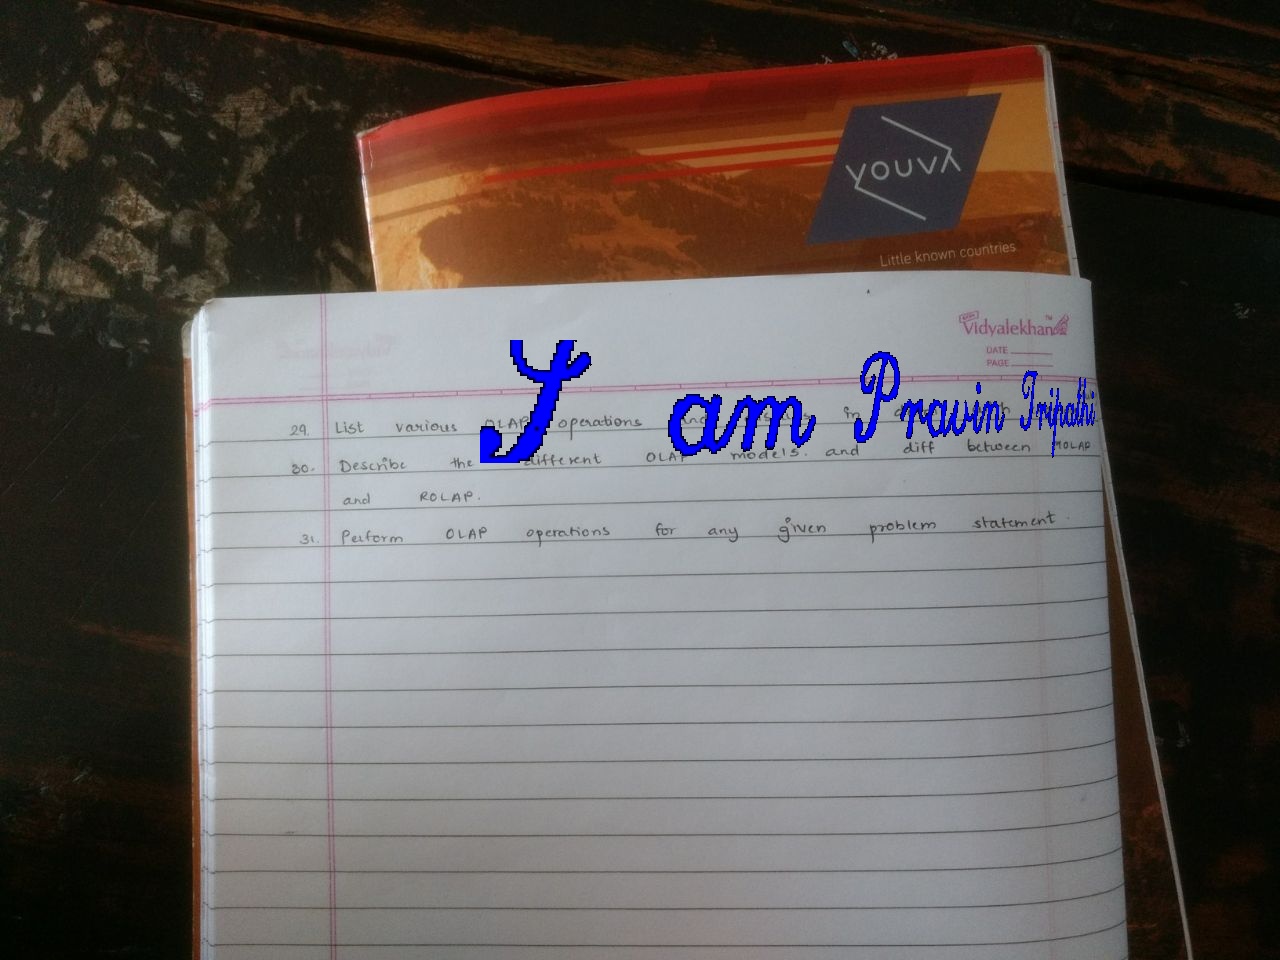 YOUVA
Little known countries
Vidyalekhan
DATE
PAGE
I am Pravin Tripathi
29. List various OLAP operations in
30. Describe the different OLAP models. and diff between MOLAP
and ROLAP.
31. Perform OLAP operations for any given problem statement.